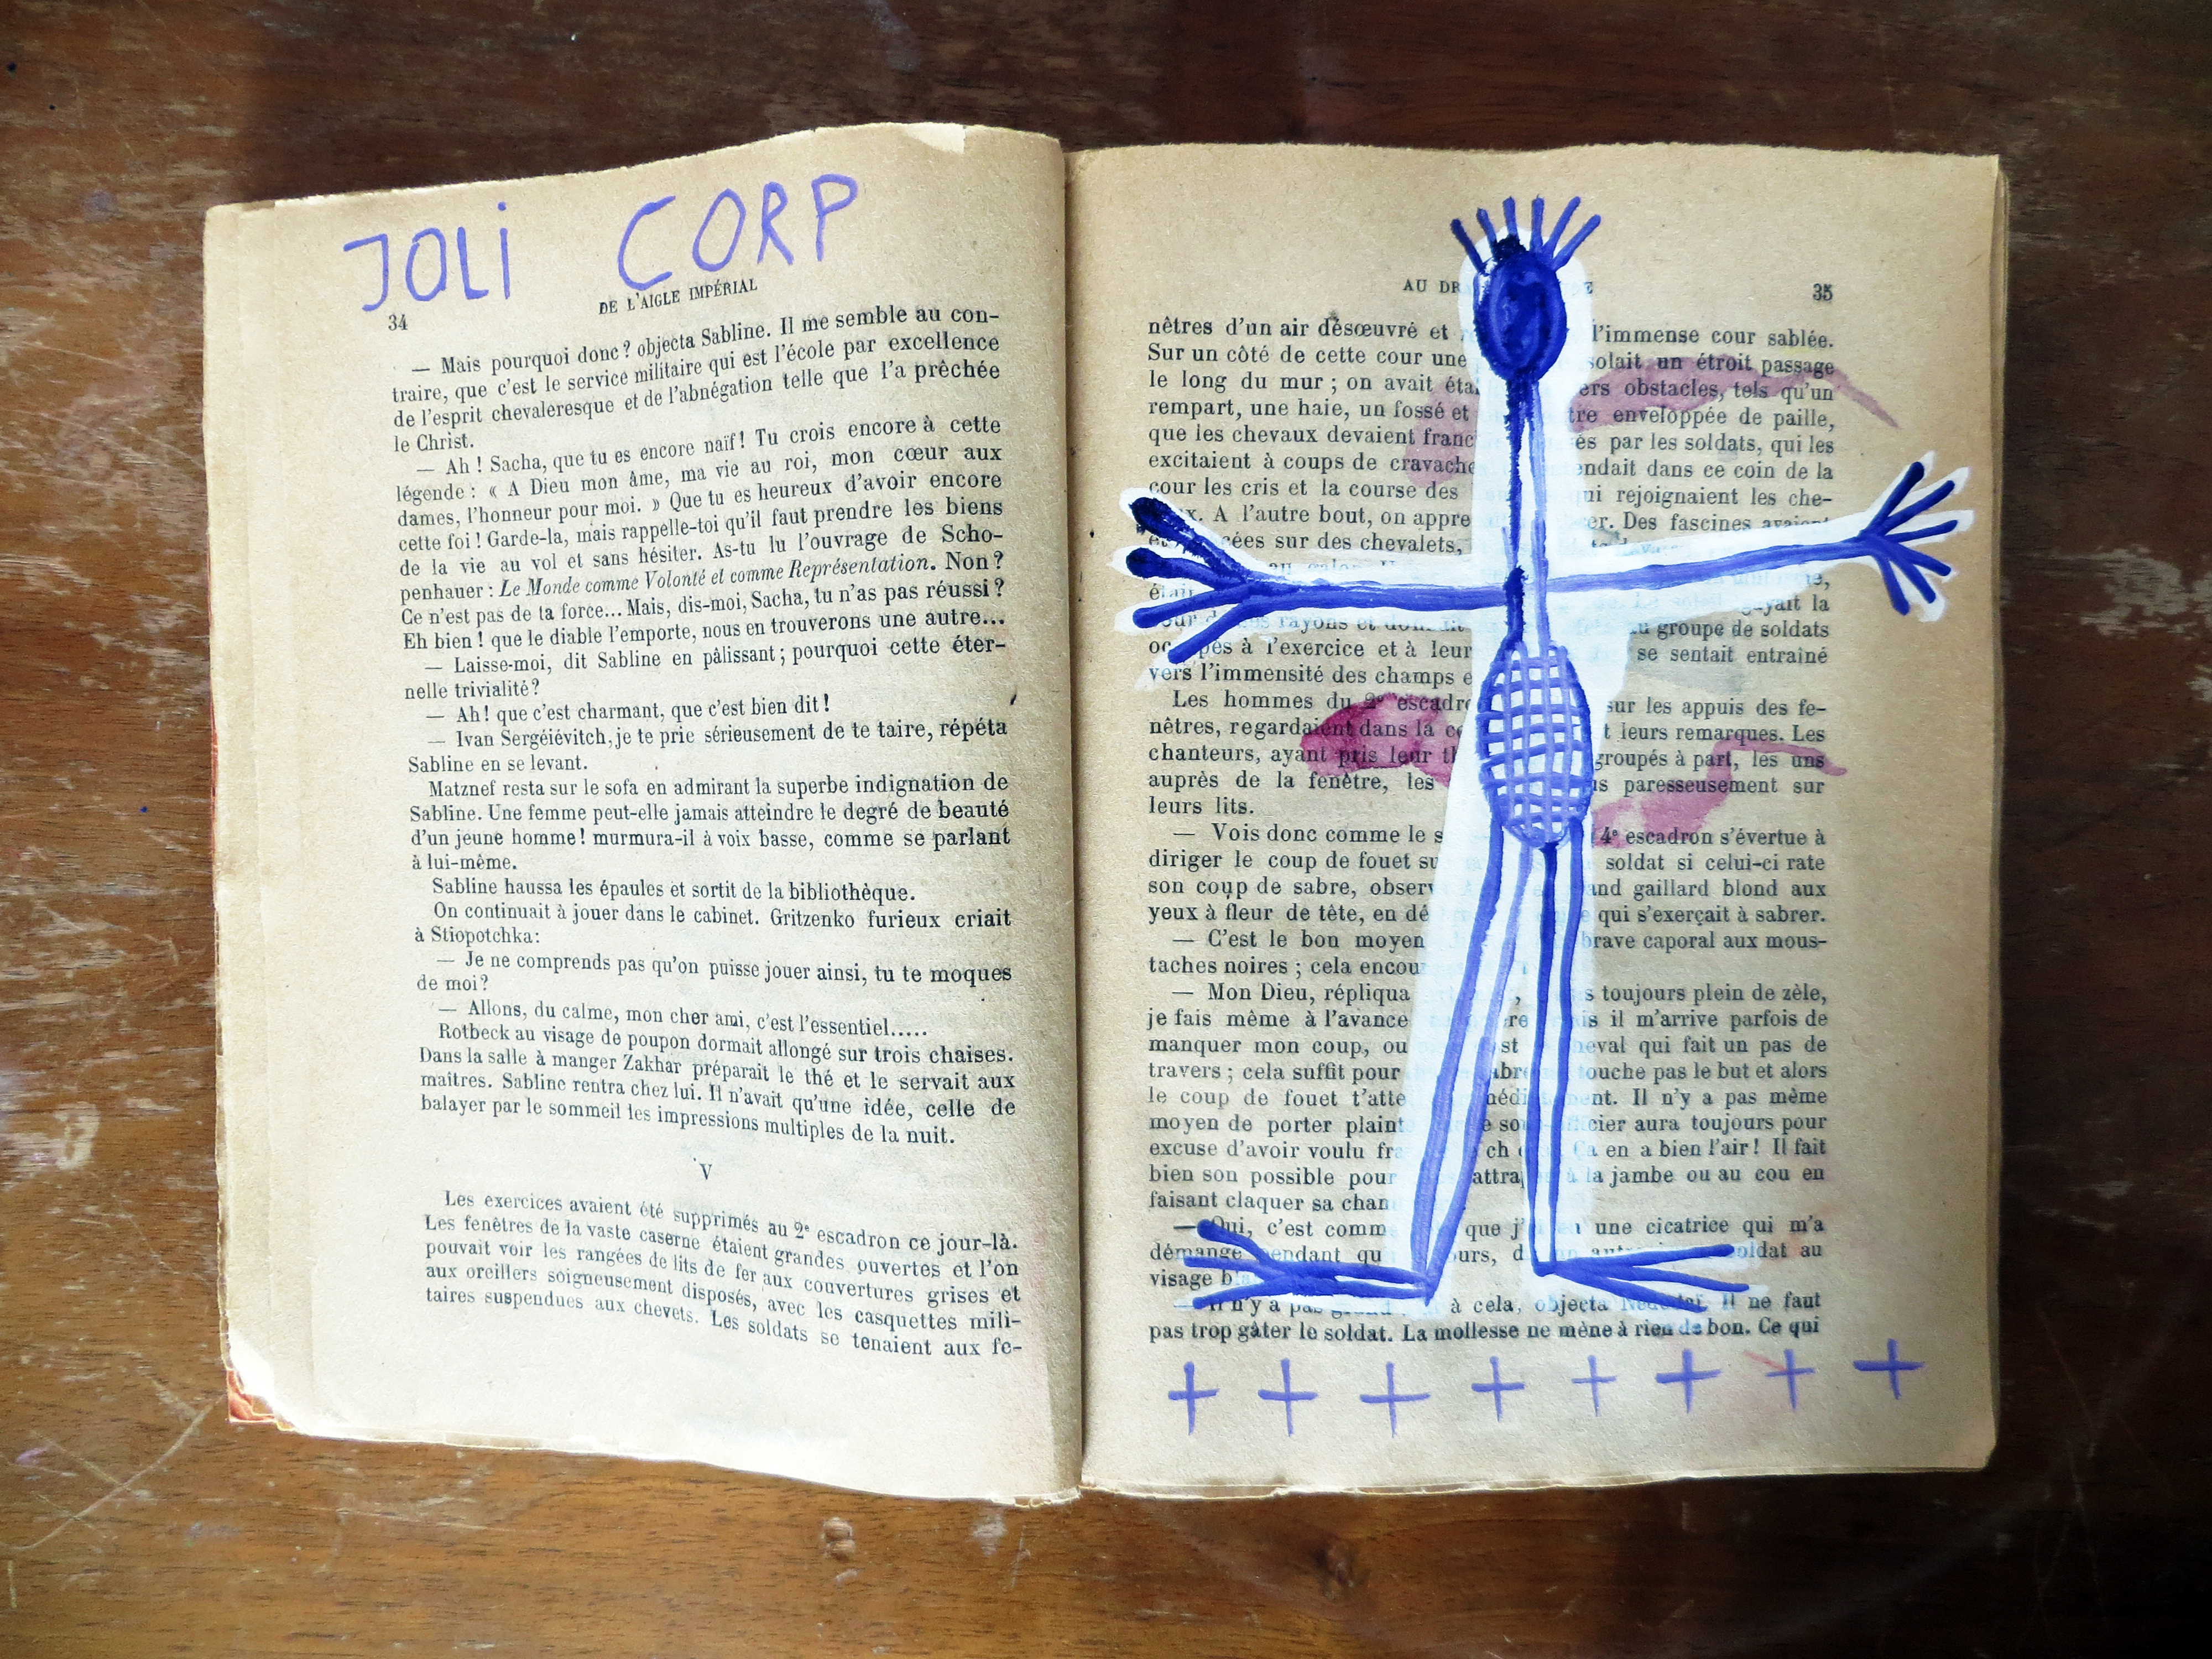 JOLI CORP
34
DE L'AIGLE IMPÉRIAL
— Mais pourquoi donc? objecta Sabline. Il me semble au con-
traire, que c'est le service militaire qui est l'école par excellence
de l'esprit chevaleresque et de l'abnégation telle que l'a prêchée
le Christ.
— Ah! Sacha, que tu es encore naïf! Tu crois encore à cette
légende : « A Dieu mon âme, ma vie au roi, mon cœur aux
dames, l'honneur pour moi. » Que tu es heureux d'avoir encore
cette foi! Garde-la, mais rappelle-toi qu'il faut prendre les biens
de la vie au vol et sans hésiter. As-tu lu l'ouvrage de Scho-
penhauer : Le Monde comme Volonté et comme Représentation. Non?
Ce n'est pas de ta force... Mais, dis-moi, Sacha, tu n'as pas réussi?
Eh bien! que le diable l'emporte, nous en trouverons une autre...
— Laisse-moi, dit Sabline en pâlissant; pourquoi cette éter-
nelle trivialité?
— Ah! que c'est charmant, que c'est bien dit!
— Ivan Sergéiévitch, je te prie sérieusement de te taire, répéta
Sabline en se levant.
Matznef resta sur le sofa en admirant la superbe indignation de
Sabline. Une femme peut-elle jamais atteindre le degré de beauté
d'un jeune homme! murmura-il à voix basse, comme se parlant
à lui-même.
Sabline haussa les épaules et sortit de la bibliothèque.
On continuait à jouer dans le cabinet. Gritzenko furieux criait
à Stiopotchka:
— Je ne comprends pas qu'on puisse jouer ainsi, tu te moques
de moi?
— Allons, du calme, mon cher ami, c'est l'essentiel.....
Rotbeck au visage de poupon dormait allongé sur trois chaises.
Dans la salle à manger Zakhar préparait le thé et le servait aux
maîtres. Sabline rentra chez lui. Il n'avait qu'une idée, celle de
balayer par le sommeil les impressions multiples de la nuit.
V
Les exercices avaient été supprimés au 2e escadron ce jour-là.
Les fenêtres de la vaste caserne étaient grandes ouvertes et l'on
pouvait voir les rangées de lits de fer aux couvertures grises et
aux oreillers soigneusement disposés, avec les casquettes mili-
taires suspendues aux chevets. Les soldats se tenaient aux fe-
AU 35
nêtres d'un air désœuvré et l'immense cour sablée.
Sur un côté de cette cour une un étroit passage
le long du mur ; on avait obstacles, tels qu'un
rempart, une haie, un fossé et enveloppée de paille,
que les chevaux devaient par les soldats, qui les
excitaient à coups de dans ce coin de la
cour les cris et la course des qui rejoignaient les che-
A l'autre bout, on Des fascines
sur des chevalets,
la
rayons et groupe de soldats
à l'exercice et à leur se sentait entraîné
vers l'immensité des champs
Les hommes du 2e sur les appuis des fe-
nêtres, regardaient dans la leurs remarques. Les
chanteurs, ayant pris leur groupés à part, les uns
auprès de la fenêtre, les paresseusement sur
leurs lits.
— Vois donc comme le 4e escadron s'évertue à
diriger le coup de fouet soldat si celui-ci rate
son coup de sabre, gaillard blond aux
yeux à fleur de tête, en qui s'exerçait à sabrer.
— C'est le bon moyen brave caporal aux mous-
taches noires ; cela
— Mon Dieu, répliqua toujours plein de zèle,
je fais même à l'avance il m'arrive parfois de
manquer mon coup, ou qui fait un pas de
travers ; cela suffit pour touche pas le but et alors
le coup de fouet Il n'y a pas même
moyen de porter aura toujours pour
excuse d'avoir voulu en a bien l'air! Il fait
bien son possible pour à la jambe ou au cou en
faisant claquer sa
— Oui, c'est que une cicatrice qui m'a
démangé pendant soldat au
visage
— Il n'y a pas à cela, objecta Il ne faut
pas trop gâter le soldat. La mollesse ne mène à rien de bon. Ce qui
+ + + + + + + +